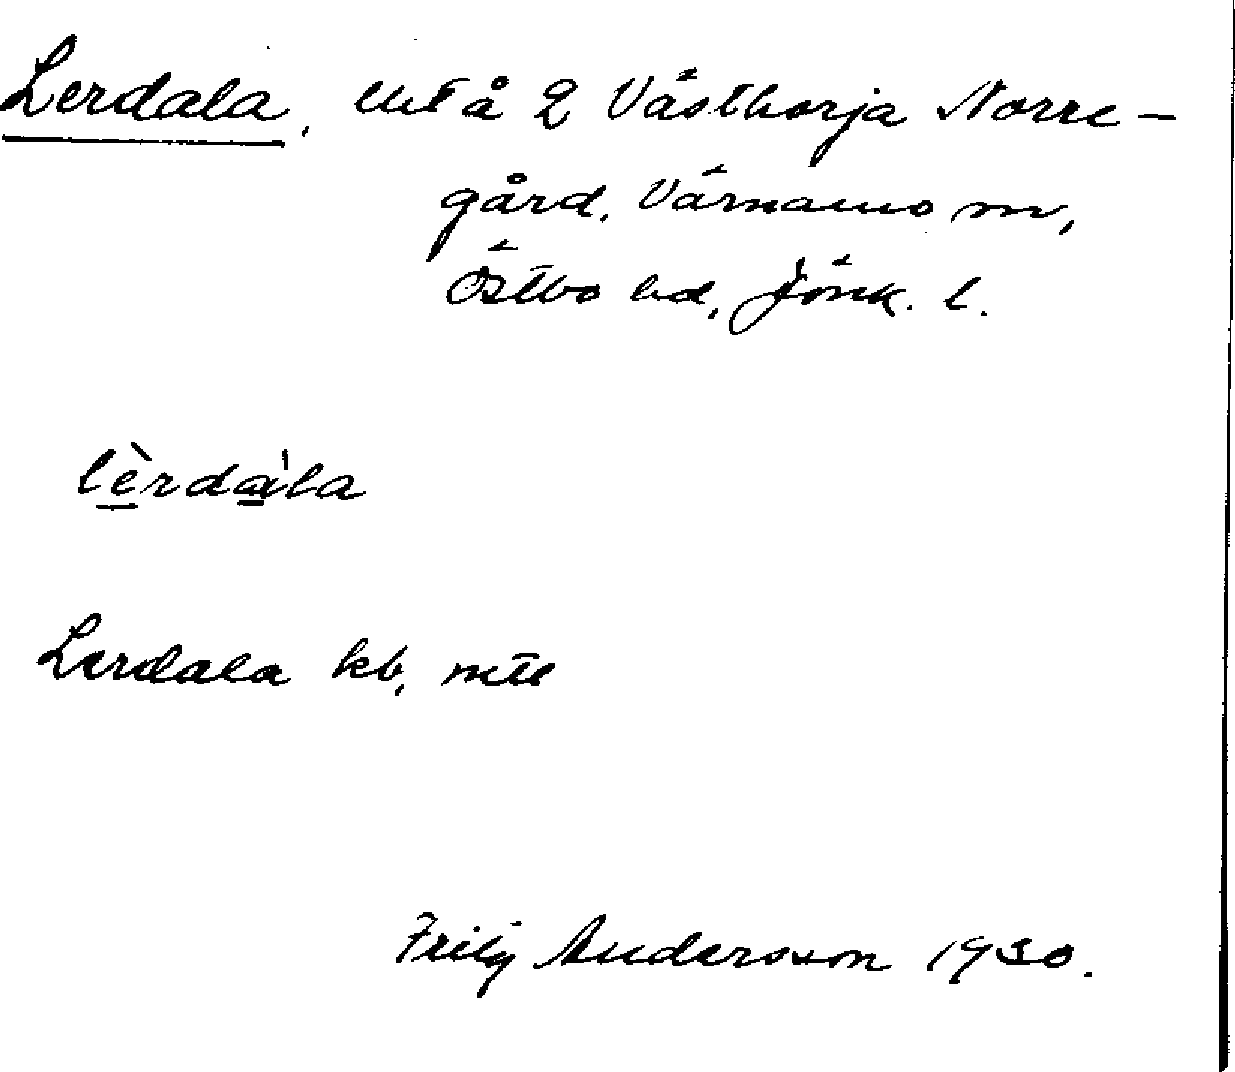 Lerdala, utå 2 Västhorja Norre-
gård, Värnamo sn,
Östbo hd, Jönk. l.
lèrdàla
Lerdala kb, mtl
Andersson 1930.